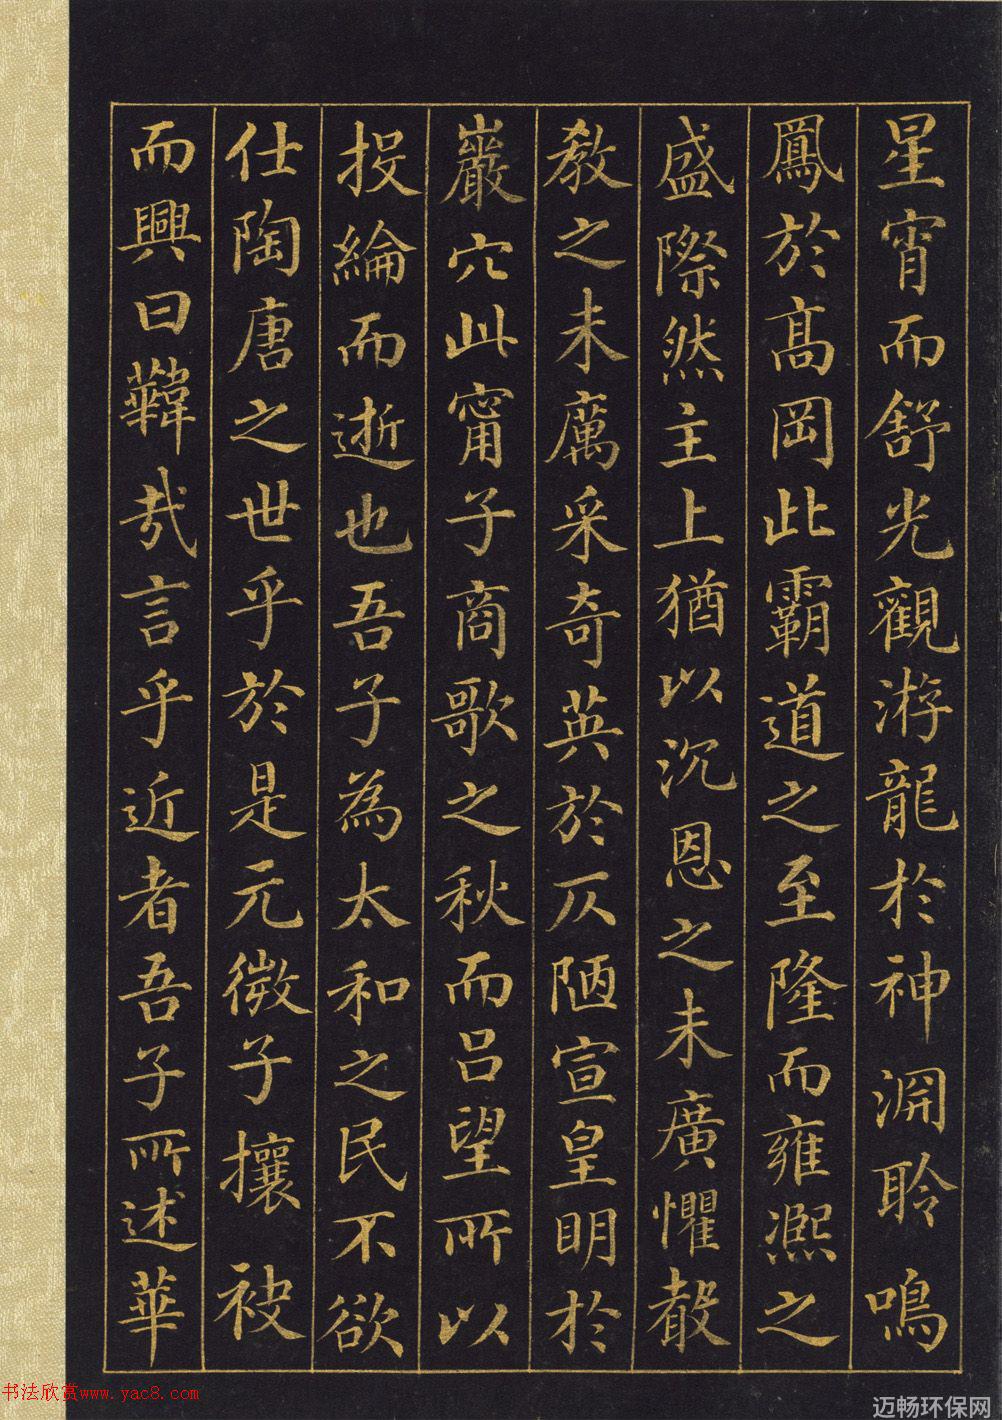 星宵而舒光觀游龍於神淵聆鳴
鳳於高岡此霸道之至隆而雍熙之
盛際然主上猶以沉恩之未廣懼聲
教之未厲采奇英於仄陋宣皇明於
巖穴此甯子商歌之秋而呂望所以
投綸而逝也吾子為太和之民不欲
仕陶唐之世乎於是元微子攘袂
而興曰韡哉言乎近者吾子所述華
书法欣赏www.yac8.com
迈畅环保网